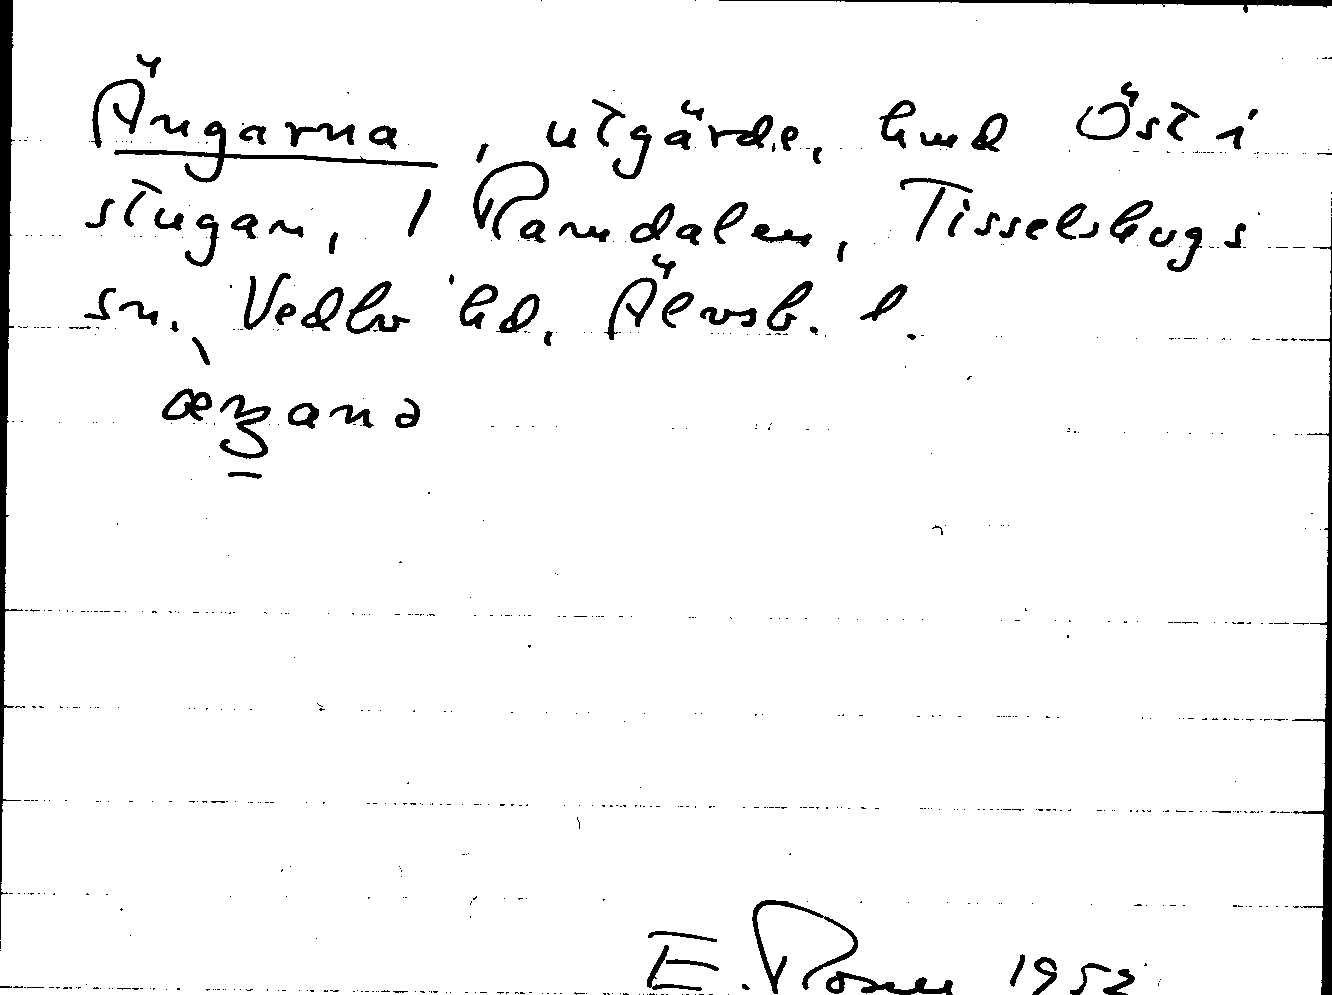 Ängarna, utgärde, hmd Öst i
stugan, 1 Ramdalen, Tisselskogs
sn. Vedbo hd, Älvsb. l.
E. Rosell 1952